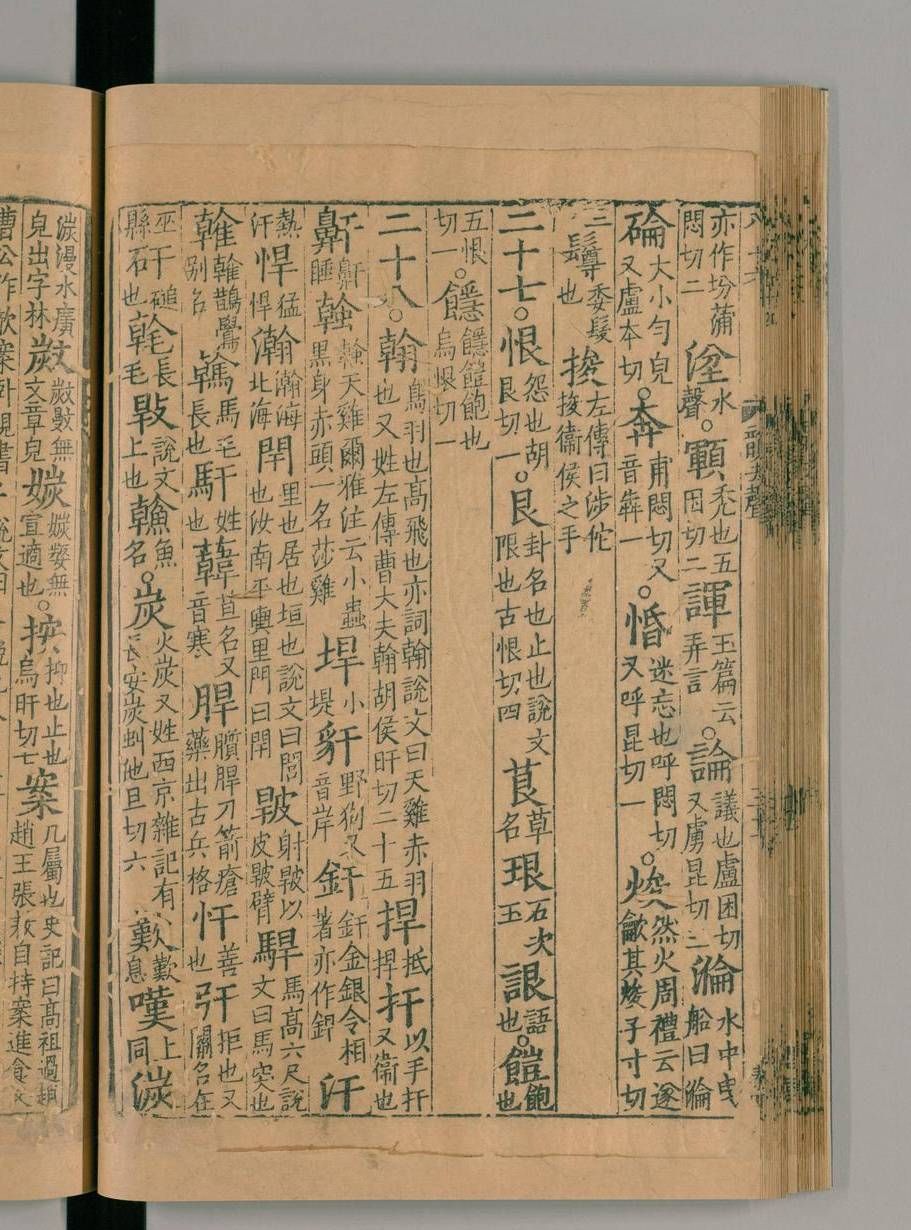 亦作坋蒲悶切二 坌水聲 ○ 顐禿也五困切二 諢玉篇云弄言 ○ 論議也盧困切又盧昆切三 淪水中曳船曰淪
碖大小勻皃又盧本切 ○ 奔甫悶切又音犇一 ○ 惛迷忘也呼悶切又呼昆切一 ○ 焌然火周禮云遂龡其焌子寸切
三 鐏委髮也 捘左傳曰涉佗捘衞侯之手
二十七 ○ 恨怨也胡艮切一 ○ 艮卦名也止也說文限也古恨切四 茛草名 珢石次玉 詪語也 ○ 饐飽也
五恨切一 ○ 䭡䭡饐飽也烏恨切一
二十八 ○ 翰鳥羽也高飛也亦詞翰說文曰天雞赤羽也又姓左傳曹大夫翰胡侯旰切二十五 捍抵捍 扞以手扞又衞也
鼾鼾睡 螒螒天雞爾雅注云小蟲黑身赤頭一名莎雞 垾小堤 豻野狗又音岸 釬釬金銀令相著亦作銲 汗
熱汗 悍猛悍 瀚瀚海北海 閈里也居也垣也說文曰閭也汝南平輿里門曰閈 䩕射䩕以皮䩕臂 駻馬高六尺說文曰馬突也
雗雗鷽別名 䮧馬毛長也 馯姓也 韓草名又音寒 䏷䐿䏷刀箭瘡藥出古兵格 忓善也 㢨拒也又關名在
巫縣 矸磓石也 毼長毛 㪋說文上也 䲒魚名 ○ 炭火炭又姓西京雜記有長安炭虯他旦切六 歎歎息 嘆上同 湠
湠漫水廣皃出字林 㱄㱄㪔無文章皃 㛶㛶㜺無宜適也 ○ 按抑也止也烏旰切七 案几屬也史記曰高祖過趙趙王張敖自持案進食